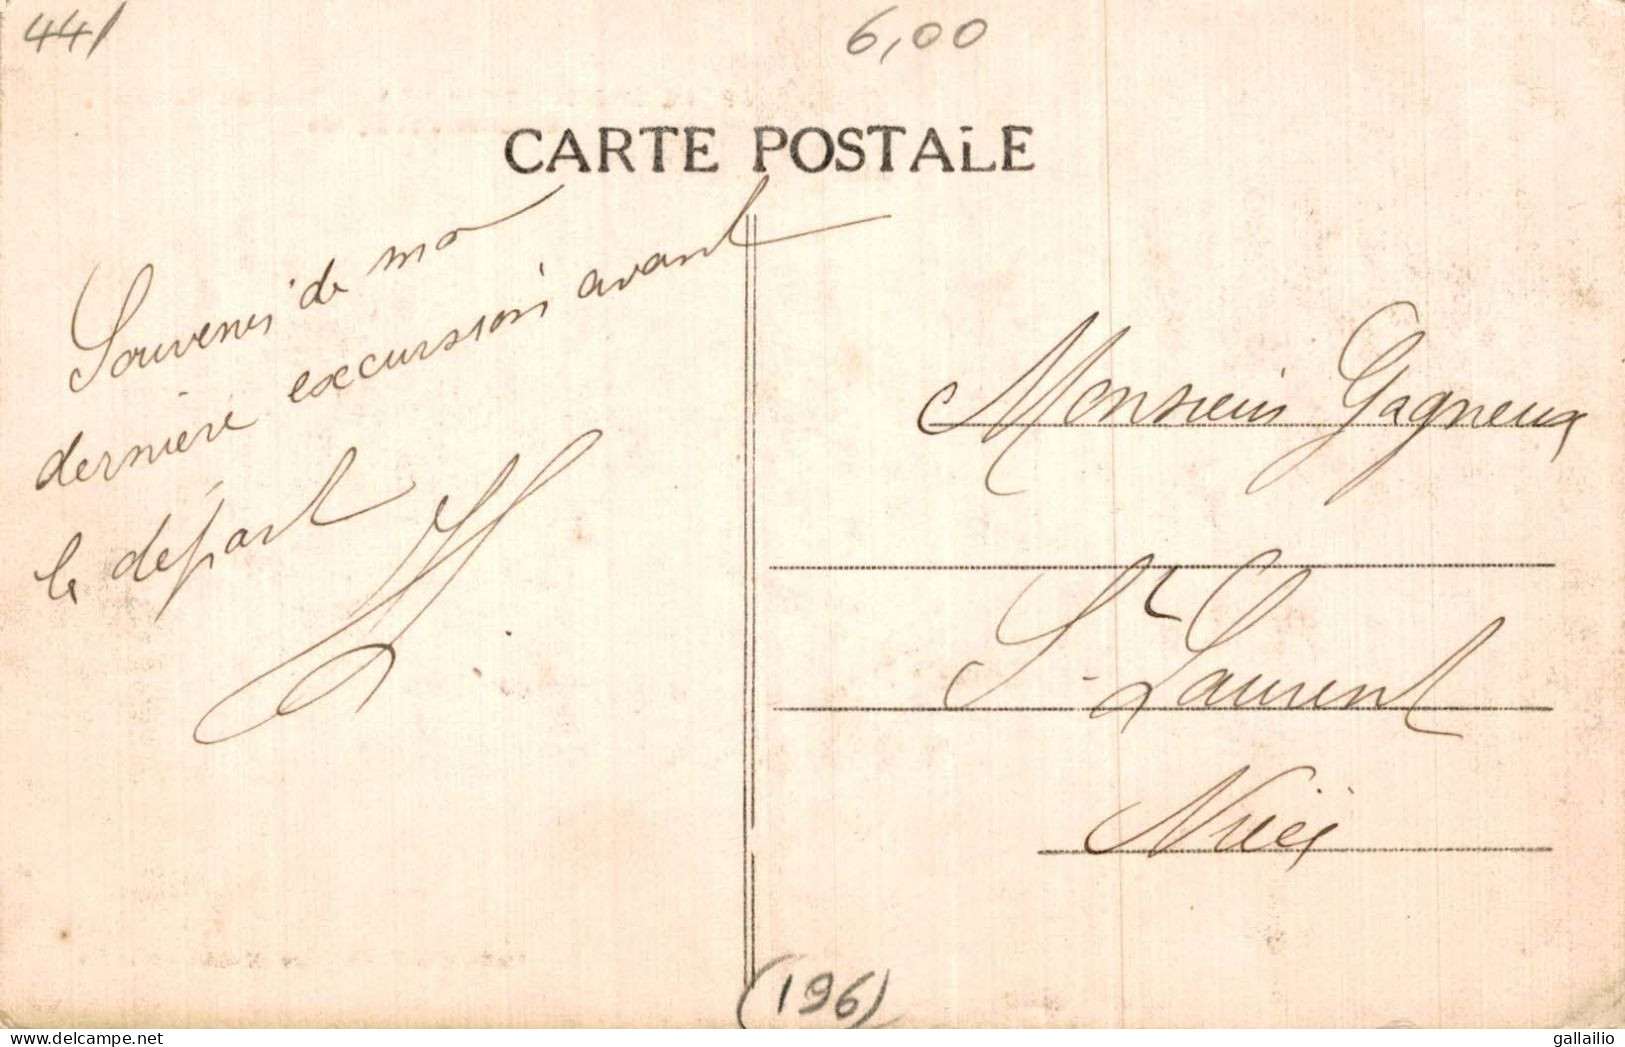 44/
6,00
CARTE POSTALE
Souvenir de ma
dernière excursion avant
le départ
Monsieur Gagneux
St-Laurent
(196)
gallailio